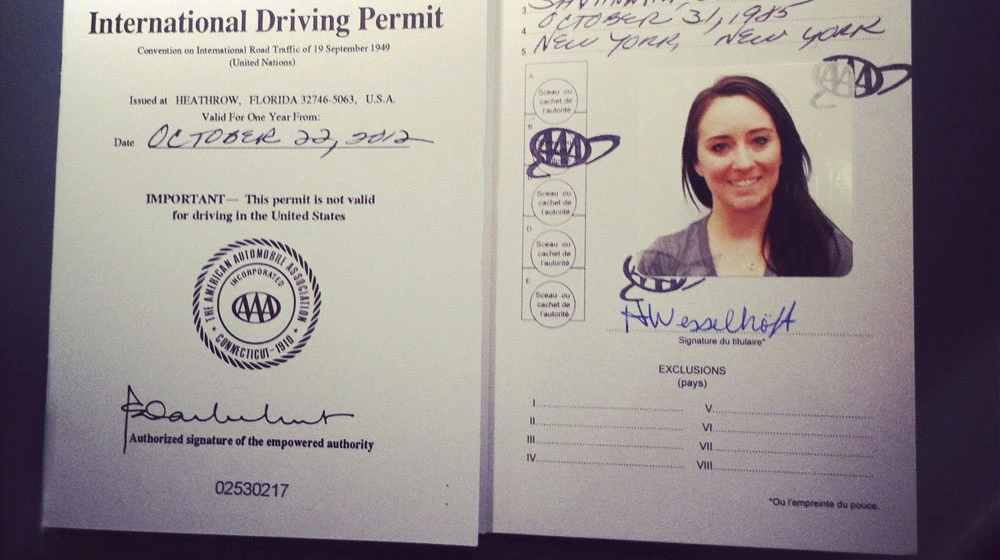 International Driving Permit
Convention on International Road Traffic of 19 September 1949
(United Nations)
Issued at HEATHROW, FLORIDA 32746-5063, U.S.A.
Valid For One Year From:
Date OCTOBER 22, 2012
IMPORTANT — This permit is not valid
for driving in the United States
THE AMERICAN AUTOMOBILE ASSOCIATION
INCORPORATED
AAA
CONNECTICUT-1910
Authorized signature of the empowered authority
02530217
3
4 OCTOBER 31, 1985
5 NEW YORK, NEW YORK
A
Sceau ou
cachet de
l'autorité
B
AAA
Sceau ou
cachet de
l'autorité
D
Sceau ou
cachet de
l'autorité
E
Sceau ou
cachet de
l'autorité
AAA
Wesselhöft
Signature du titulaire*
EXCLUSIONS
(pays)
I. V.
II. VI.
III. VII.
IV. VIII.
*Ou l'empreinte du pouce.